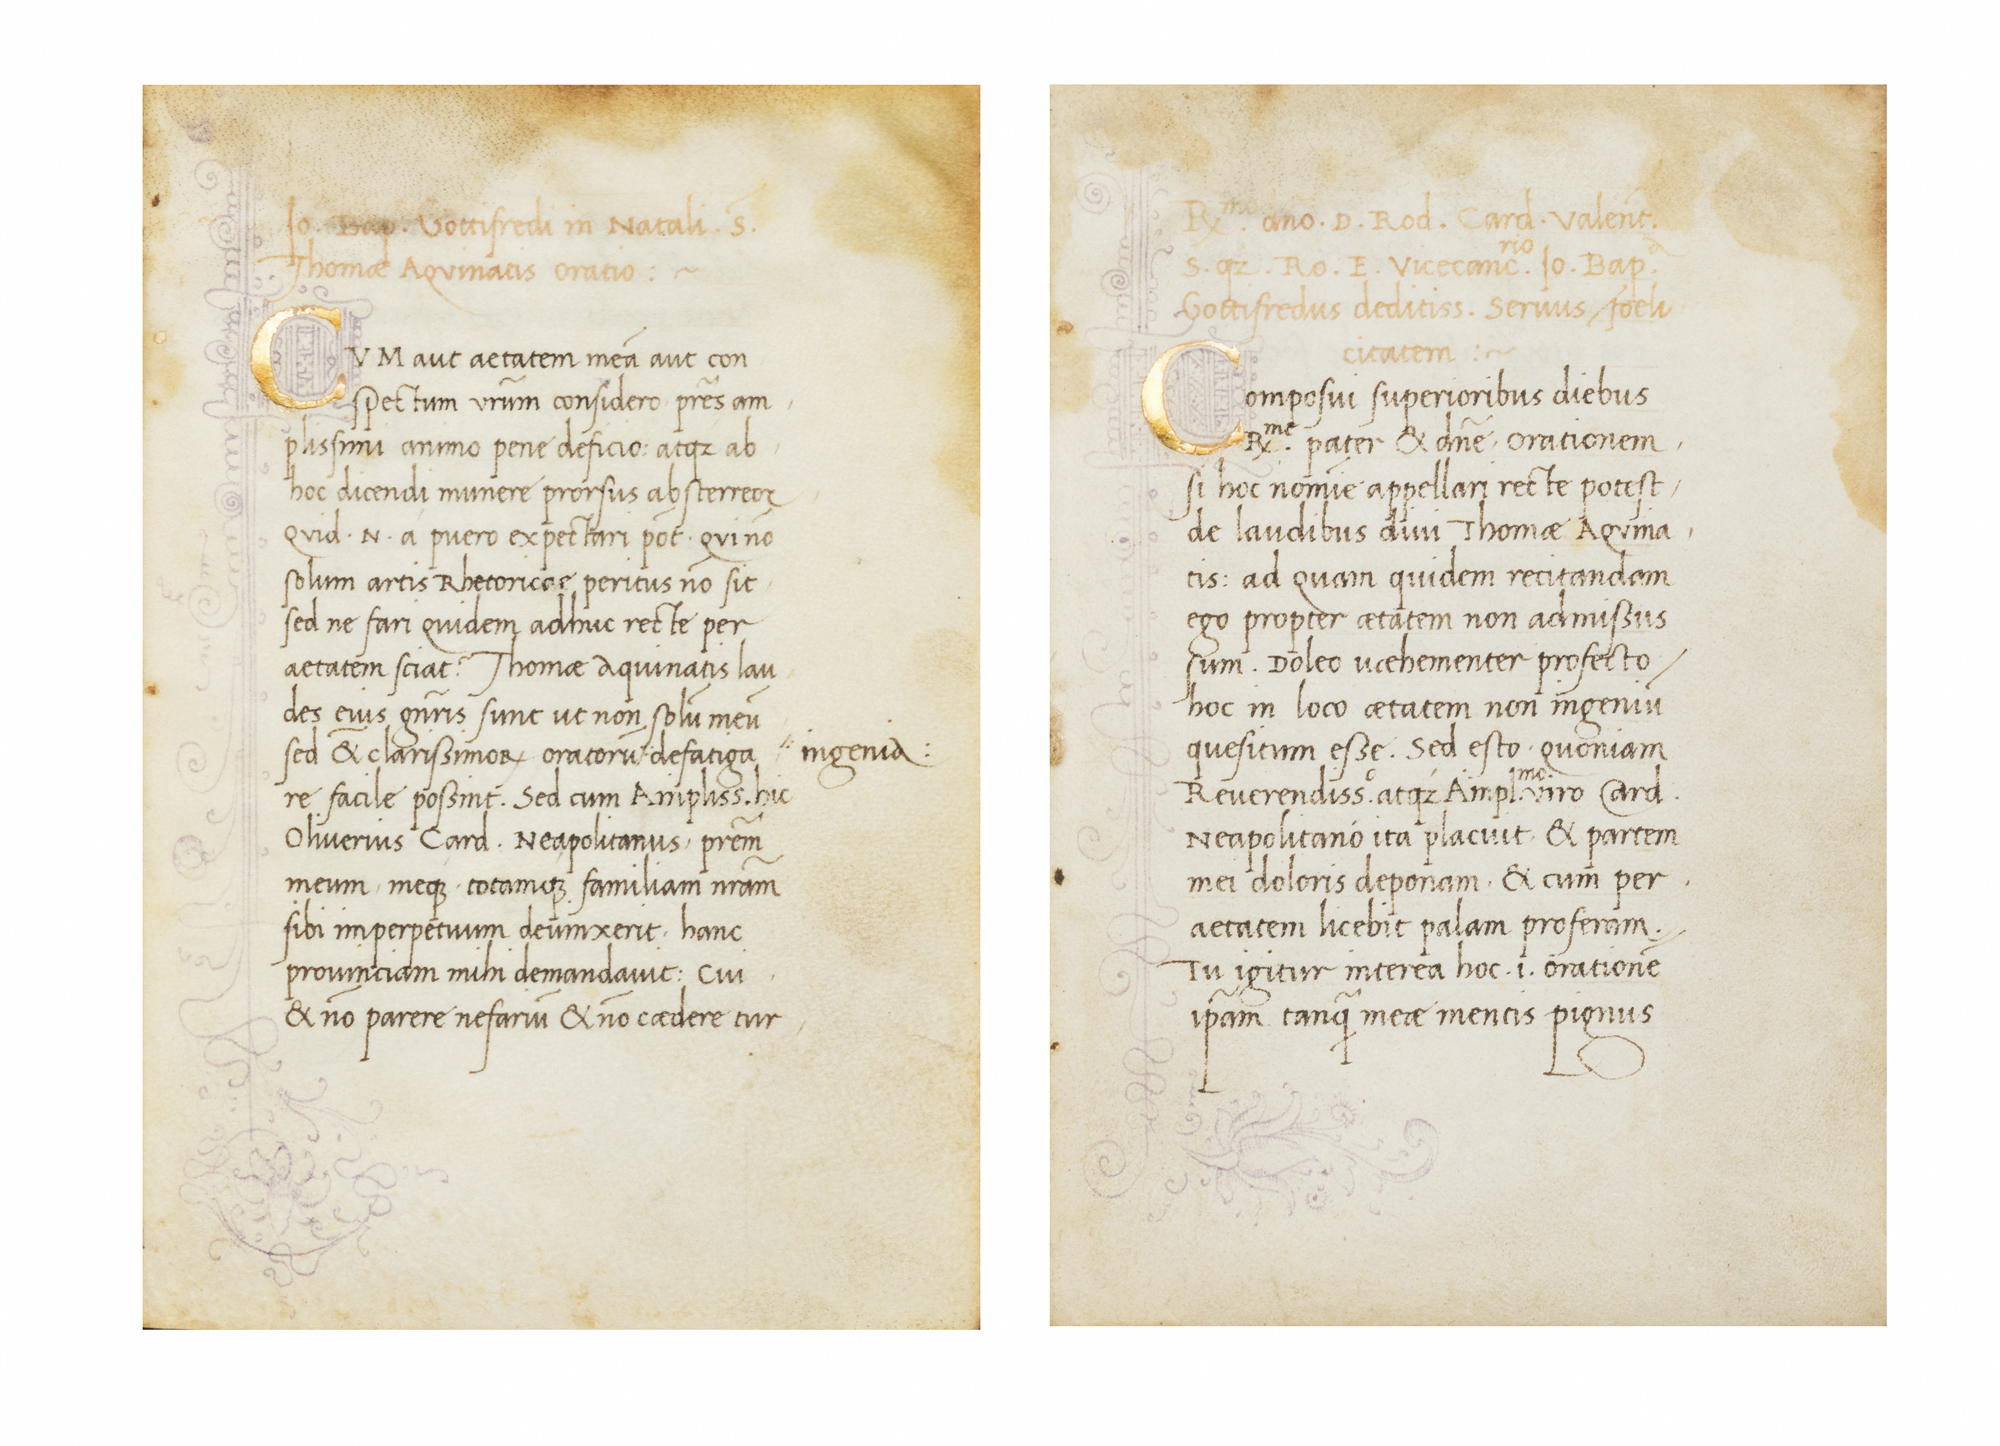 Io. Bap. Gottifredi in Natali. S.
Thomæ Aqvinatis oratio : ~
CVM aut aetatem meā aut con
spectum vr̄um considero pr̄es am
plissimi animo pene deficio: atqꝫ ab
hoc dicendi munere prorsus absterreor
Qvid · N · a puero expectari pōt · qui nō
solum artis Rhetoricae peritus nō sit
sed ne fari quidem adhuc recte per
aetatem sciat? Thomæ Aquinatis lau
des eius gn̄ris sunt ut non solū meū
sed & clarissimoꝝ oratorū defatiga ingenia :
re facile possint. Sed cum Ampliss. hic
Oliverius Card. Neapolitanus, prēm
meum, meqꝫ, totamqꝫ familiam nrām
sibi imperpetuum deuinxerit, hanc
prouinciam mihi demandauit: Cui
& nō parere nefariū & nō cædere tur
R.mo dno. D. Rod. Card. Valent.
S. qꝫ. Ro. E. Vicecanc.rio Io. Bap.a
Gottifredus deditiss. Seruus foeli
citatem :~
Composui superioribus diebus
R.me pater & dn̄e, orationem
si hoc nomīe appellari recte potest
de laudibus diui Thomæ Aqvina
tis: ad quam quidem recitandam
ego propter ætatem non admissus
sum. Doleo uæhementer profecto
hoc in loco ætatem non ingeniū
quesitum esse. Sed esto, quoniam
Reuerendiss.o atqꝫ Ampl.mo viro Card.
Neapolitano ita placuit, & partem
mei doloris deponam, & cum per
aetatem licebit palam proferam.
Tu igitur interea hoc .i. orationē
ip̄am tanꝗ̄ meæ mentis pignus